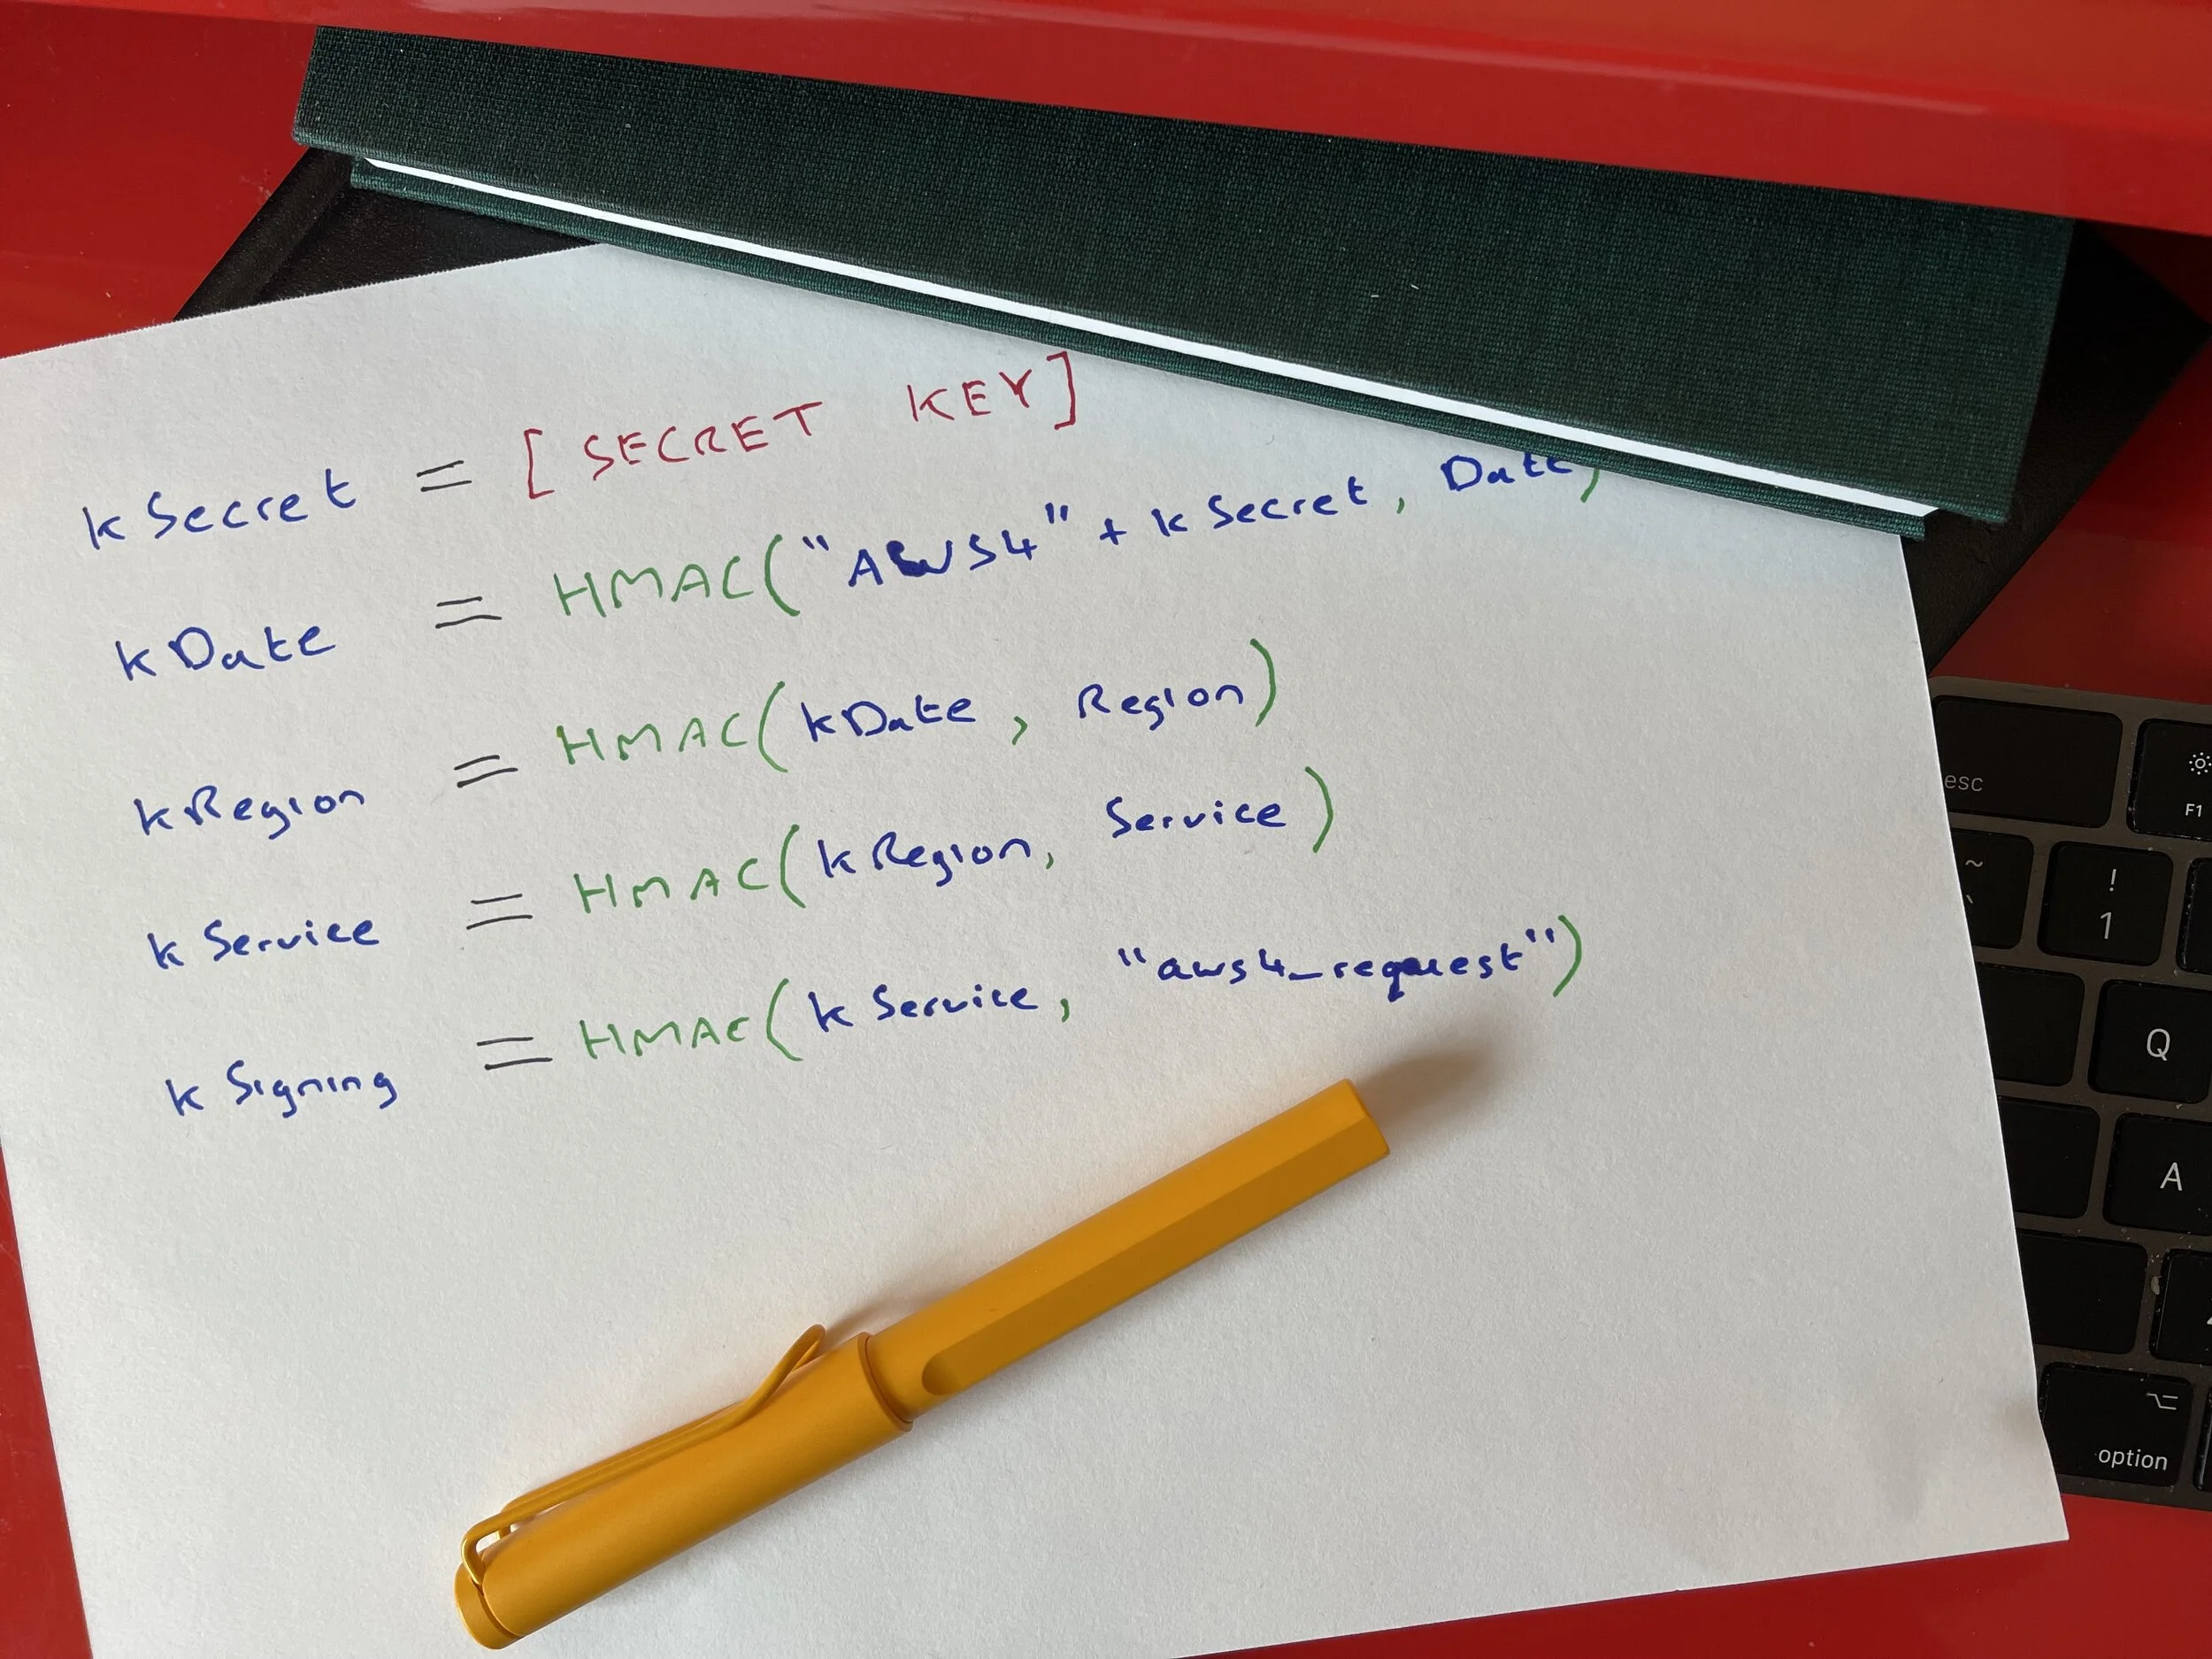 kSecret = [SECRET KEY]
kDate = HMAC("AWS4" + kSecret, Date)
kRegion = HMAC(kDate, Region)
kService = HMAC(kRegion, Service)
kSigning = HMAC(kService, "aws4_request")
esc
F1
~
`
!
1
Q
A
option